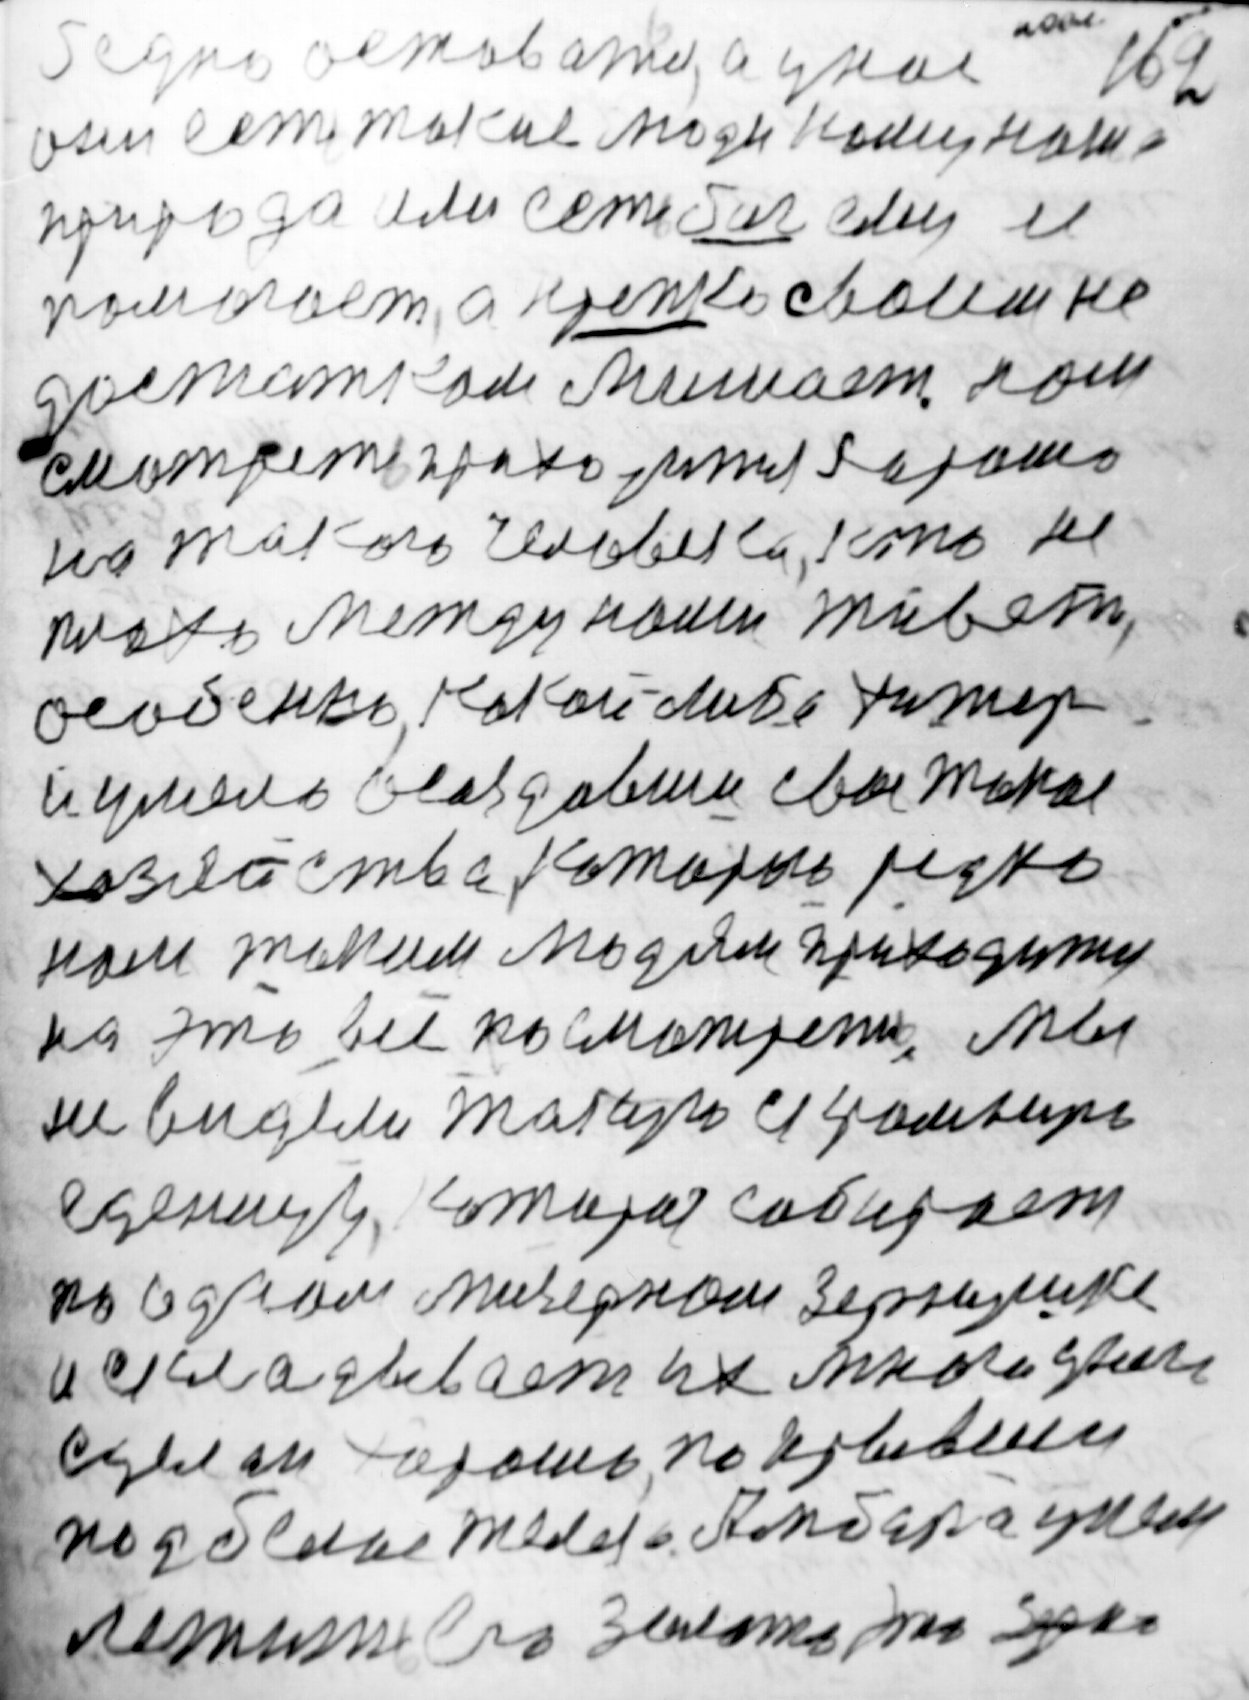 162
бедно оставатся, а у нас
они есть такие люди кому наша
природа или есть бог ему и
помогает, а крепко своим не
достатком мешает. нам
смотреть приходится хорошо
на такого человека, кто не
плохо между нами живеть,
особенно, какой-либо хитер
и умело создавши свое такое
хозяйства, которые редко
нам таким людям приходится
на это всё посмотреть. Мы
не видели такую скромную
еденицу, которая собирает
по одном мизерном зернушке
и складывает их много
хорошо, покрывши
под белае железа. Анбар а у нем
лежить его золото это зерно